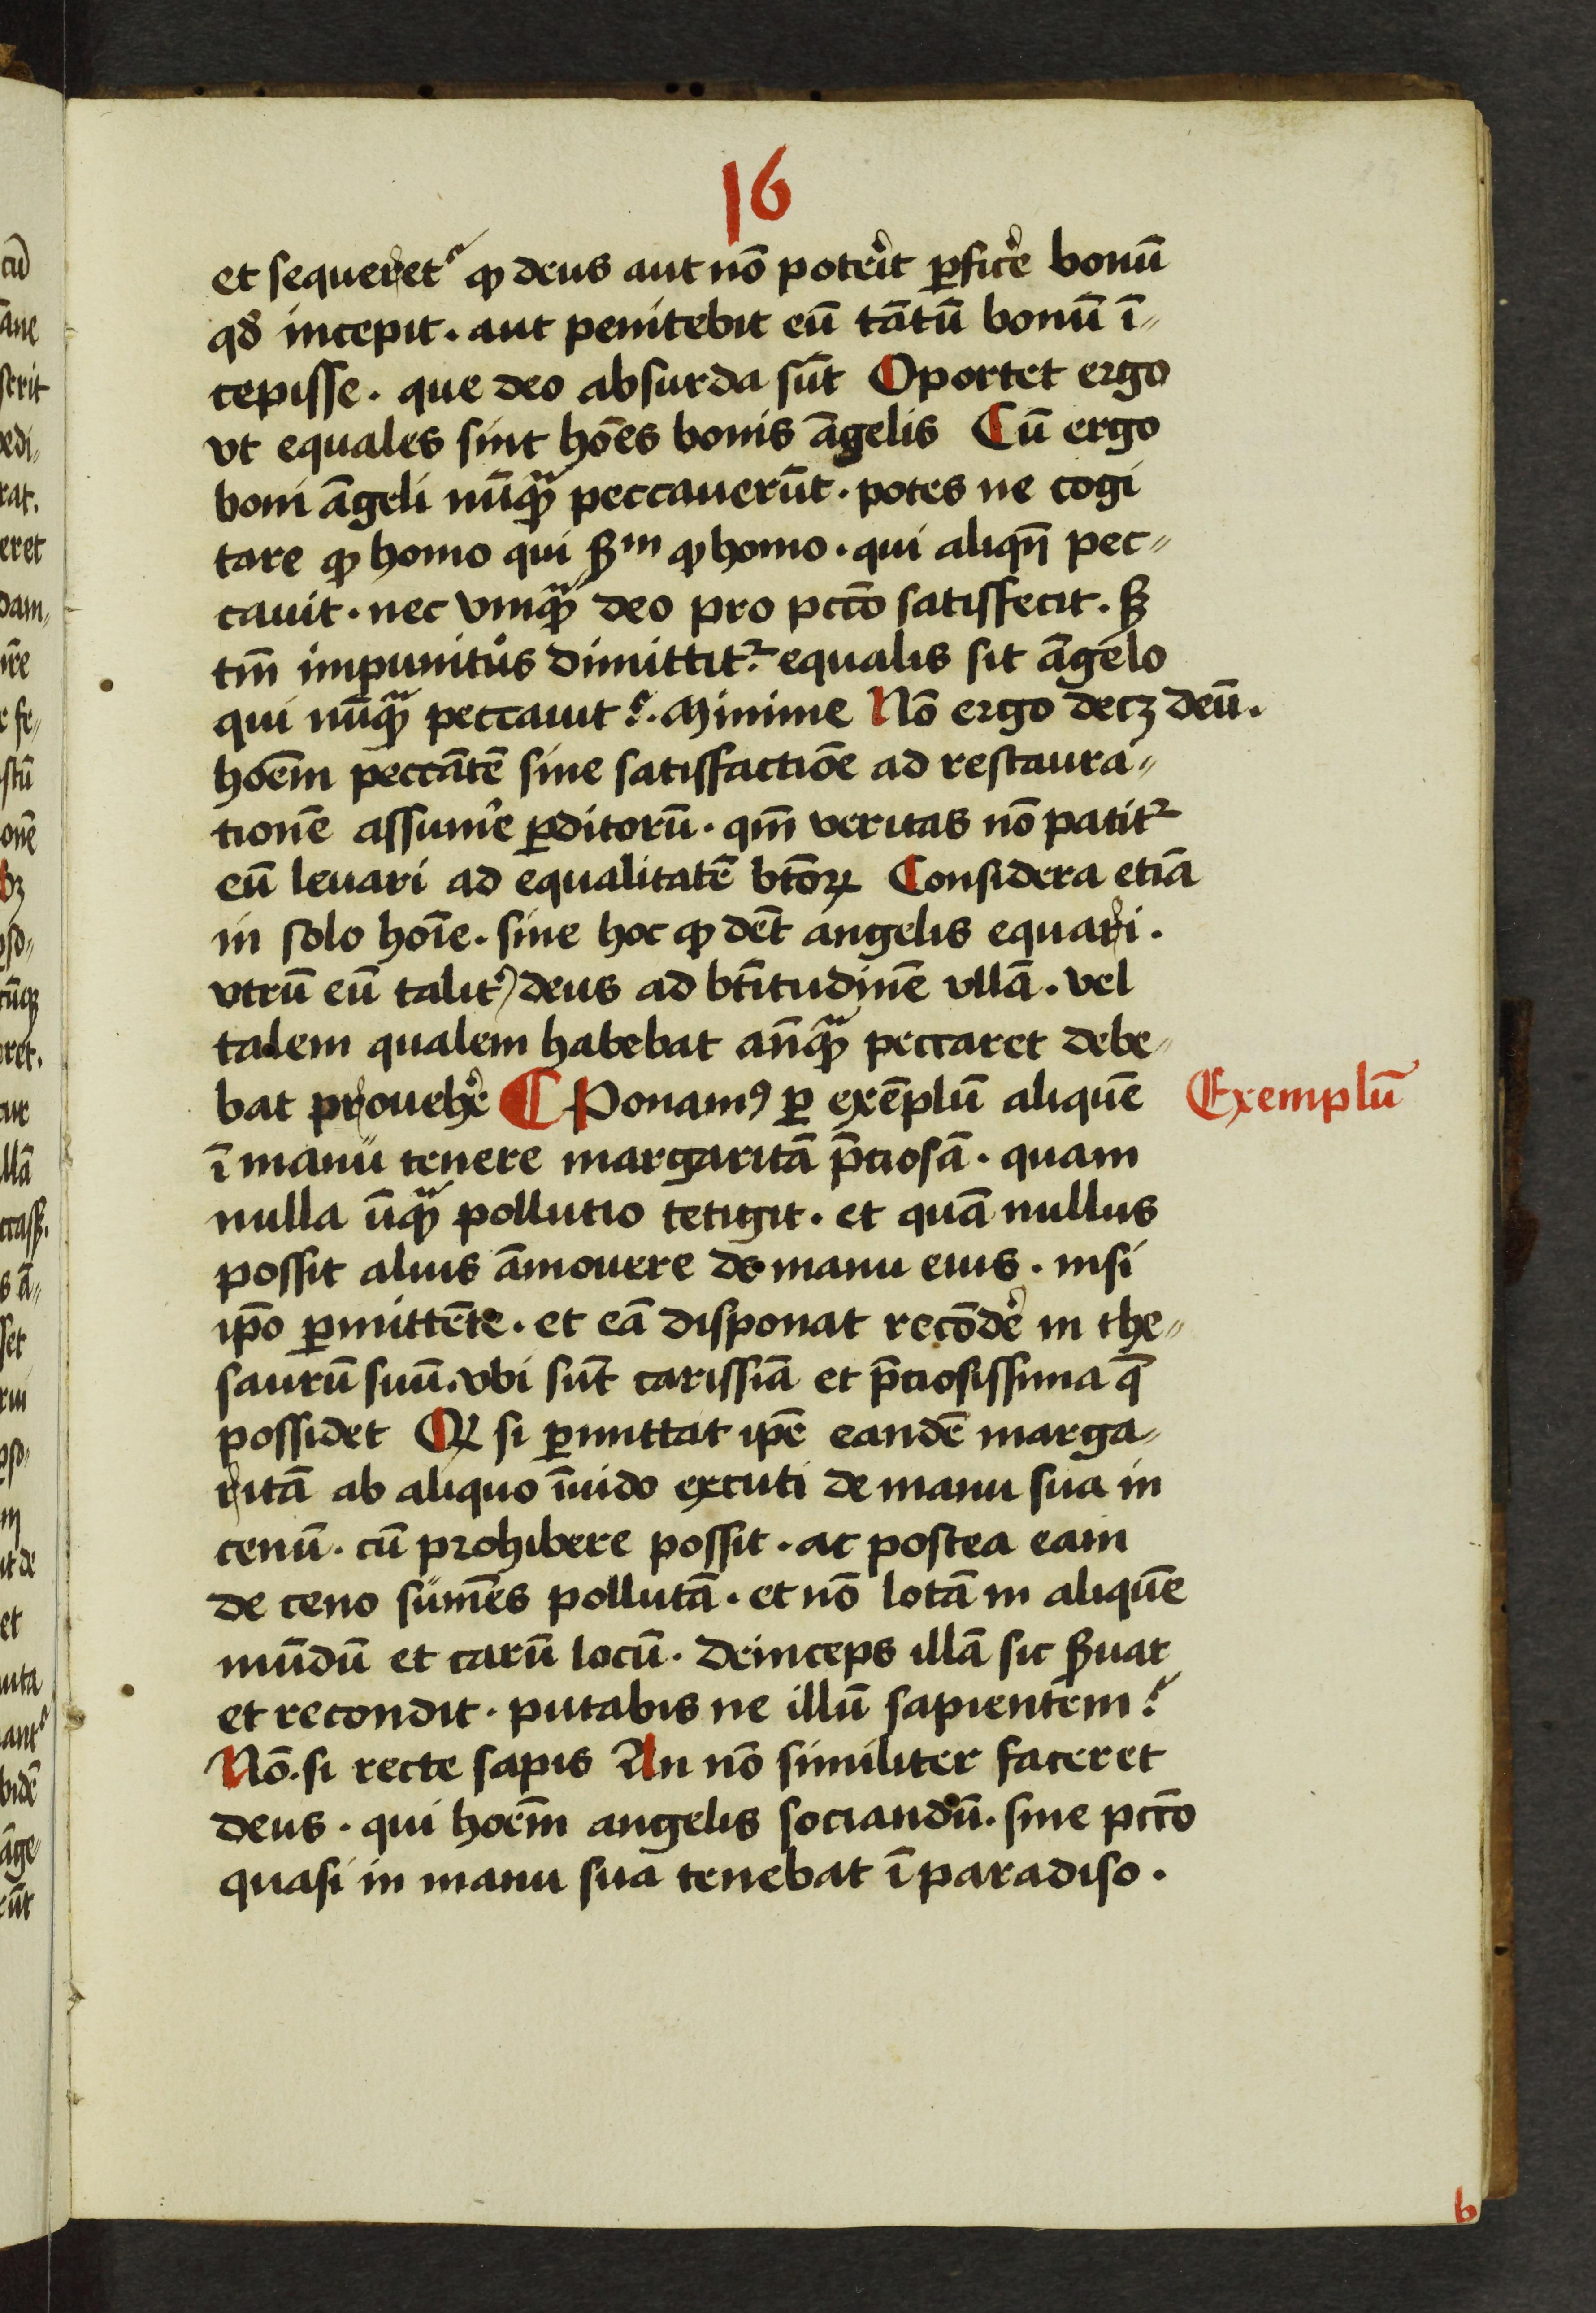 16
et sequeret᷑ qꝫ deus aut nō potˀit ꝑficˀe bonū
qđ incepit. aut penitebit eū tātū bonū ī⸗
cepisse. que deo absurda sūt Oportet ergo
vt equales sint hōes bonis āgelis Cū ergo
boni āgeli nūqᷓ peccauerūt. potes ne cogi
tare ꝙ homo qui ꝓm ꝙ homo. qui aliqn̄ pec⸗
cauit. nec vmqᷓ deo pro pctō satisfecit. sꝫ
tm̄ impunitus dimittit᷑ equalis sit āgelo
qui nūqᷓ peccauit? Minime Nō ergo decꝫ deū.
hoēm peccātē sine satisfactiōe ad restaura⸗
tionē assumˀe ꝑditorū. qm̄ veritas nō patit᷑
eū leuari ad equalitatē btōꝝ Considera etiā
in solo hoīe. sine hoc ꝙ dēt angelis equari.
vtrū eū talitˀ deus ad btītudinē vllā. vel
talem qualem habebat an̄qᷓ peccaret debe⸗
bat prouehˀe ¶ Ponamꝰ ꝑ exēplū aliquē
Exemplū
ī manu tenere margaritā p̄ciosā. quam
nulla ūqᷓ pollutio tetigit. et quā nullus
possit alius āmouere de manu eius. nisi
ip̄o ꝑmittēte. et eā disponat recōdˀe in the⸗
saurū suū. vbi sūt carissīa et p̄ciosissima q̄
possidet Qꝫ si ꝑmittat ip̄e eandē marga⸗
ritā ab aliquo īuido excuti de manu sua in
cenū. cū prohibere possit. ac postea eam
de ceno sumēs pollutā. et nō lotā in aliquē
mūdū et carū locū. deinceps illā sic ẜuat
et recondit. putabis ne illū sapientem?
Nō. si recte sapis An nō similiter faceret
deus. qui hoēm angelis sociandū. sine pctō
quasi in manu sua tenebat ī paradiso.
b